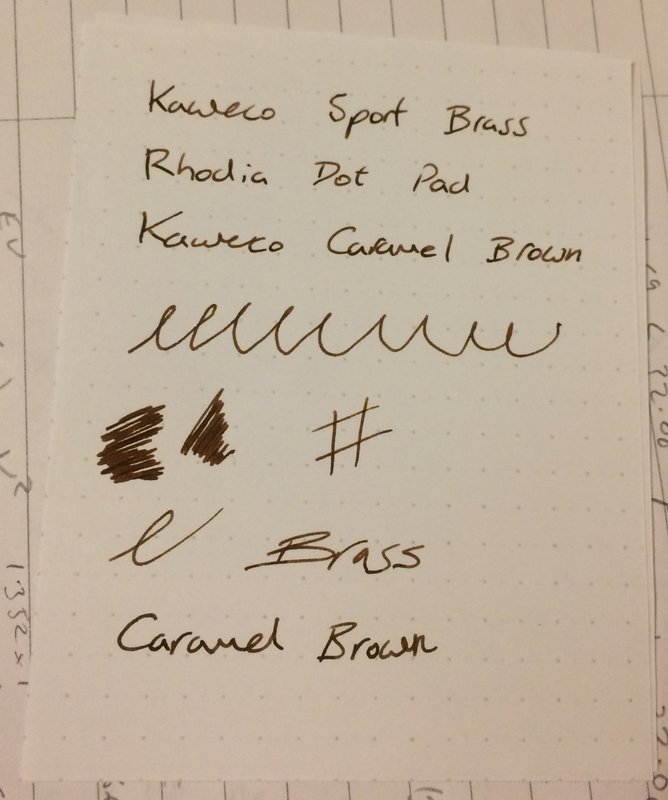 Kaweco Sport Brass
Rhodia Dot Pad
Kaweco Caramel Brown
#
Brass
Caramel Brown